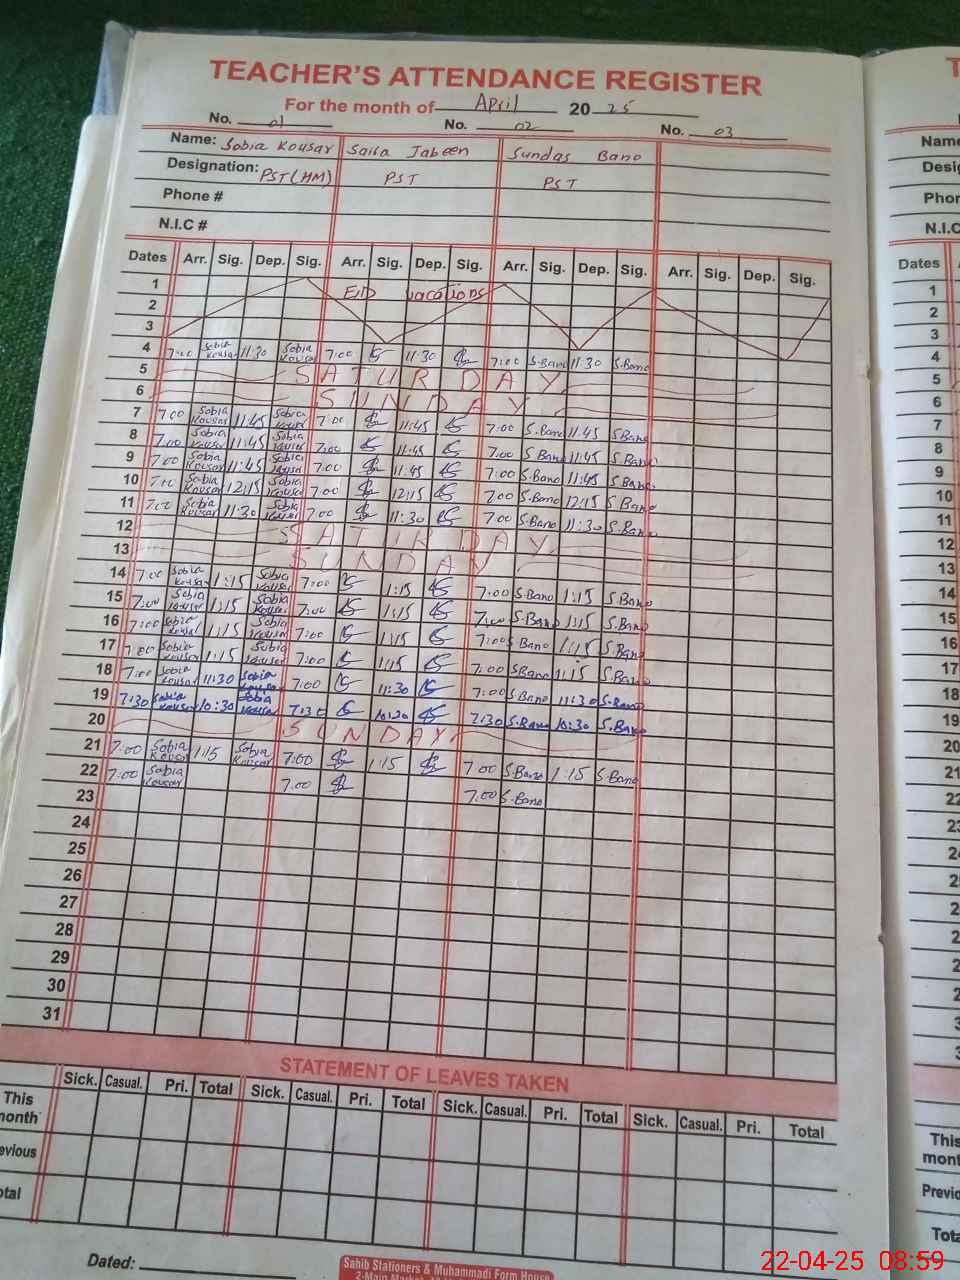 TEACHER'S ATTENDANCE REGISTER
For the month of April 2025
No. 01 No. 02 No. 03
Name: Sobia Kousar Saira Jabeen Sundas Bano
Designation: PST(HM) PST PST
Phone #
N.I.C #
Dates Arr. Sig. Dep. Sig. Arr. Sig. Dep. Sig. Arr. Sig. Dep. Sig. Arr. Sig. Dep. Sig.
1 EID vacations
2
3
4 7:00 Sobia Kousar 11:30 Sobia Kousar 7:00 11:30 7:00 S.Bano 11:30 S.Bano
5 SATURDAY
6 SUNDAY
7 7:00 Sobia Kousar 11:45 Sobia Kousar 7:00 11:45 7:00 S.Bano 11:45 S.Bano
8 7:00 Sobia Kousar 11:45 Sobia Kousar 7:00 11:45 7:00 S.Bano 11:45 S.Bano
9 7:00 Sobia Kousar 11:45 Sobia Kousar 7:00 11:45 7:00 S.Bano 11:45 S.Bano
10 7:00 Sobia Kousar 12:15 Sobia Kousar 7:00 12:15 7:00 S.Bano 12:15 S.Bano
11 7:00 Sobia Kousar 11:30 Sobia Kousar 7:00 11:30 7:00 S.Bano 11:30 S.Bano
12 SATURDAY
13 SUNDAY
14 7:00 Sobia Kousar 1:15 Sobia Kousar 7:00 1:15 7:00 S.Bano 1:15 S.Bano
15 7:00 Sobia Kousar 1:15 Sobia Kousar 7:00 1:15 7:00 S.Bano 1:15 S.Bano
16 7:00 Sobia Kousar 1:15 Sobia Kousar 7:00 1:15 7:00 S.Bano 1:15 S.Bano
17 7:00 Sobia Kousar 1:15 Sobia Kousar 7:00 1:15 7:00 S.Bano 1:15 S.Bano
18 7:00 Sobia Kousar 11:30 Sobia Kousar 7:00 11:30 7:00 S.Bano 11:30 S.Bano
19 7:30 Sobia Kousar 10:30 Sobia Kousar 7:30 10:30 7:30 S.Bano 10:30 S.Bano
20 SUNDAY
21 7:00 Sobia Kousar 1:15 Sobia Kousar 7:00 1:15 7:00 S.Bano 1:15 S.Bano
22 7:00 Sobia Kousar 7:00 7:00 S.Bano
23
24
25
26
27
28
29
30
31
STATEMENT OF LEAVES TAKEN
Sick. Casual. Pri. Total Sick. Casual. Pri. Total Sick. Casual. Pri. Total Sick. Casual. Pri. Total
This month
evious
otal
Dated:
Sahib Stationers & Muhammadi Form House
22-04-25 08:59